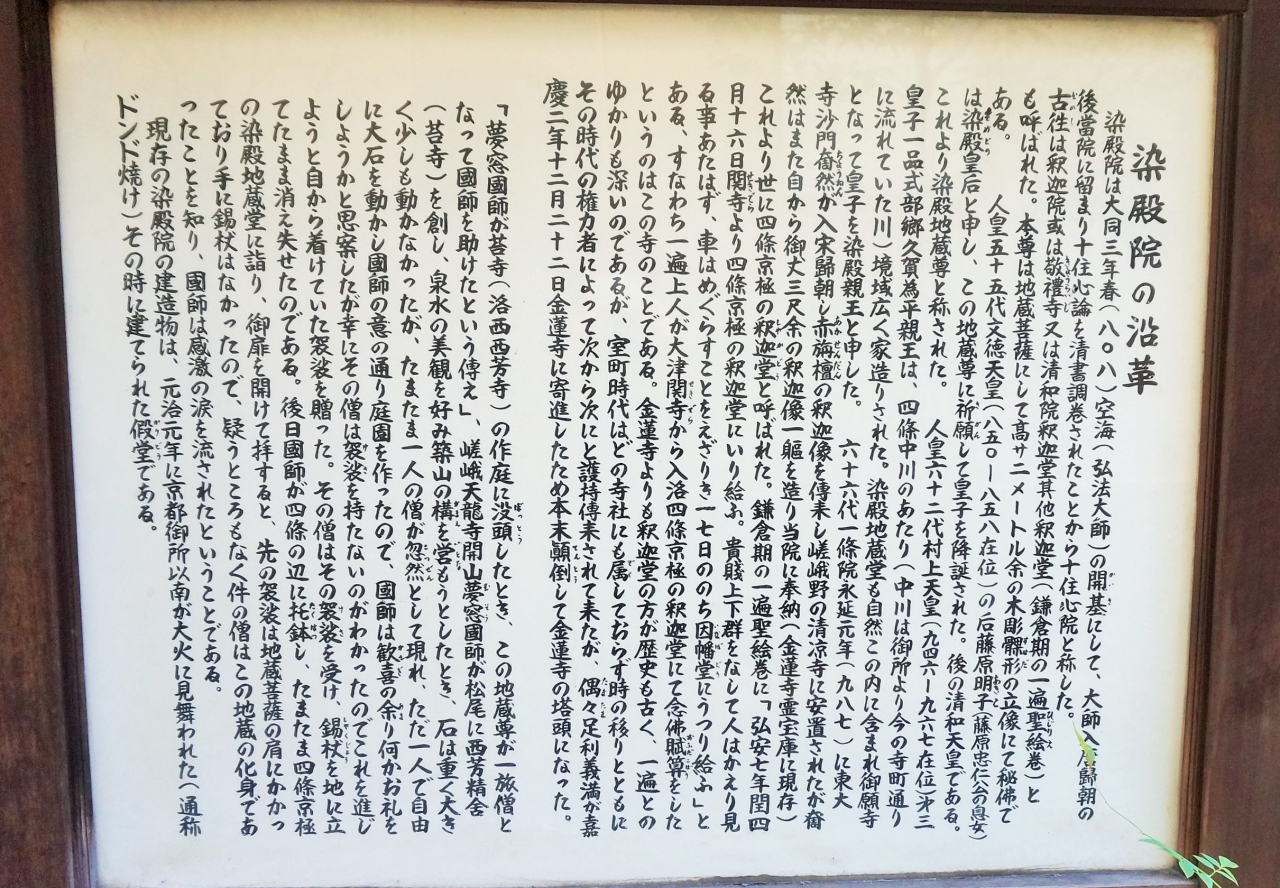 染殿院の沿革
染殿院は大同三年春(八〇八)空海(弘法大師)の開基にして、大師入唐歸朝の
後當院に留まり十住心論を清書調巻されたことから十住心院と称した。
古往は釈迦院或は敬禮寺又は清和院釈迦堂其他釈迦堂(鎌倉期の一遍聖絵巻)と
も呼ばれた。本尊は地蔵菩薩にして高サ二メートル余の木彫髁形の立像にて秘佛で
ある。 人皇五十五代文徳天皇(八五〇ー八五八在位)の后藤原明子(藤原忠仁公の息女)
は染殿皇后と申し、この地蔵尊に祈願して皇子を降誕された。後の清和天皇である。
これより染殿地蔵尊と称された。 人皇六十二代村上天皇(九四六ー九六七在位)第三
皇子一品式部郷久賀為平親王は、四條中川のあたり(中川は御所より今の寺町通り
に流れていた川)境域広く家造りされた。染殿地蔵堂も自然この内に含まれ御願寺
となって皇子を染殿親王と申した。 六十六代一條院永延元年(九八七)に東大
寺沙門奝然が入宋歸朝し赤栴檀の釈迦像を傳来し嵯峨野の清凉寺に安置されたが奝
然はまた自から御丈三尺余の釈迦像一軀を造り当院に奉納(金蓮寺霊宝庫に現存)
これより世に四條京極の釈迦堂と呼ばれた。鎌倉期の一遍聖絵巻に「弘安七年閏四
月十六日関寺より四條京極の釈迦堂にいり給ふ。貴賤上下群をなして人はかえり見
る事あたはず、車はめぐらすことをえざりき一七日ののち因幡堂にうつり給ふ」と
ある、すなわち一遍上人が大津関寺から入洛四條京極の釈迦堂にて念佛賦算をした
というのはこの寺のことである。金蓮寺よりも釈迦堂の方が歴史も古く、一遍との
ゆかりも深いのであるが、室町時代はどの寺社にも属しておらず時の移りとともに
その時代の権力者によって次から次にと護持傳来されて来たが、偶々足利義満が嘉
慶二年十二月二十二日金蓮寺に寄進したため本末顚倒して金蓮寺の塔頭になった。
「夢窓國師が苔寺(洛西西芳寺)の作庭に没頭したとき、この地蔵尊が一旅僧と
なって國師を助けたという傳え」、嵯峨天龍寺開山夢窓國師が松尾に西芳精舎
(苔寺)を創し、泉水の美観を好み築山の構を営もうとしたとき、石は重く大き
く少しも動かなかったが、たまたま一人の僧が忽然として現れ、ただ一人で自由
に大石を動かし國師の意の通り庭園を作ったので、國師は歓喜の余り何かお礼を
しようかと思案したが幸にその僧は袈裟を持たないのがわかったのでこれを進じ
ようと自から着けていた袈裟を贈った。その僧はその袈裟を受け、錫杖を地に立
てたまま消え失せたのである。後日國師が四條の辺に托鉢し、たまたま四條京極
の染殿地蔵堂に詣り、御扉を開けて拝すると、先の袈裟は地蔵菩薩の肩にかかっ
ており手に錫杖はなかったので、疑うところもなく件の僧はこの地蔵の化身であ
ったことを知り、國師は感激の涙を流されたということである。
現存の染殿院の建造物は、元治元年に京都御所以南が大火に見舞われた(通称
ドンド焼け)その時に建てられた假堂である。